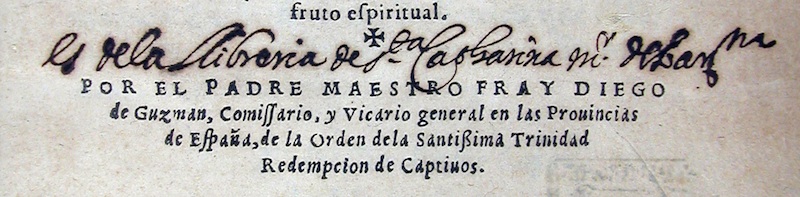 fruto eſpiritual.
es dela Llibreria de S.ta Catharina m.r de Bar.na
POR EL PADRE MAESTRO FRAY DIEGO
de Guzman, Comiſſario, y Vicario general en las Prouincias
de Eſpaña, de la Orden dela Santißima Trinidad
Redempcion de Captiuos.